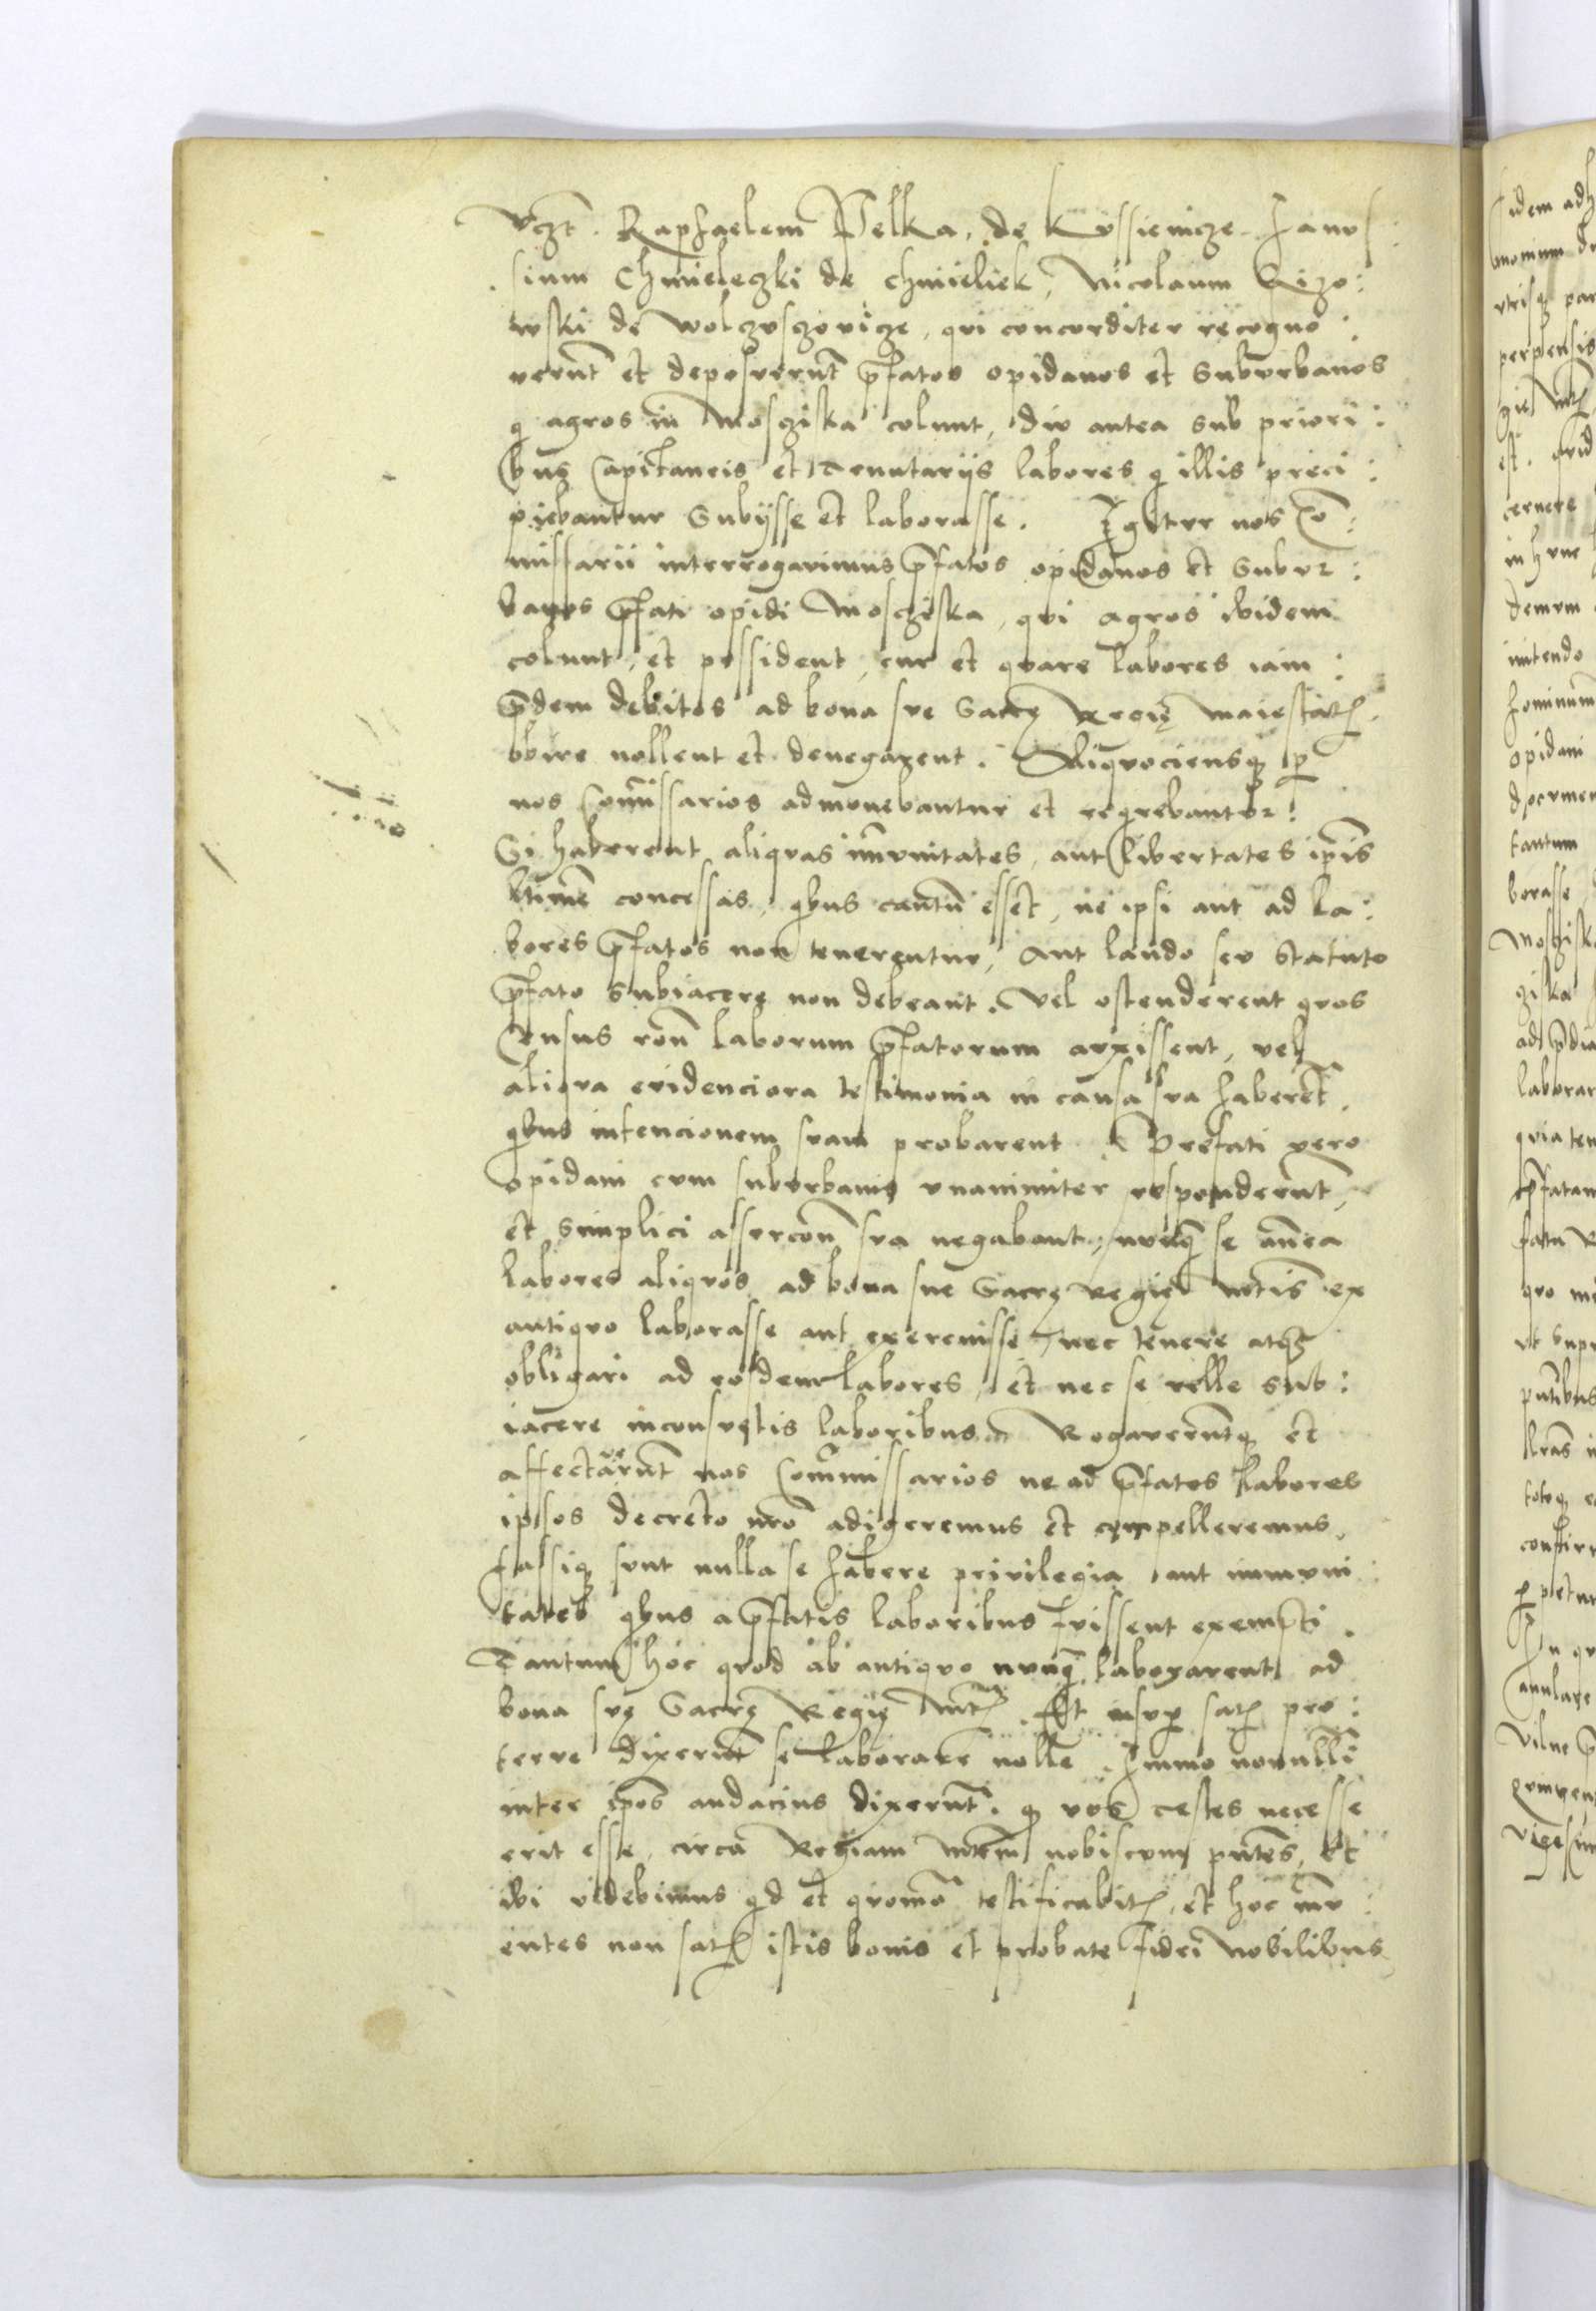 vczt. Raphaelem Pelka, de Kussienicze. Janus
sium Chmieleczki de Chmieliek, Nicolaum Rizo:
wski de Wolczysczovicze, qui concorditer recogno:
verunt et deposuerunt p̄fatos opidanos et Suburbanos
q agros in Mosciska colunt, diu antea sub priori:
bus Capitaneis et Tenutariis labores q illis preci:
piebantur Subiisse et laborasse. Igitur nos Co:
missarii interrogavimus p̄fatos opidanos et Subur:
banos p̄fati opidi Mosciska, qui agros ibidem
colunt, et possident, cur et quare labores iam:
p̄dem debitos ad bona sue Sacrę Regię Maiestatis
obire nollent et denegarent. Aliquociensq per
nos Comissarios admonebantur et reqrebantur:
Si haberent aliquas imunitates, aut libertates ip̄is
l̄time concessas, qbus cautū esset, ne ipsi aut ad la:
bores p̄fatos non tenerentur, Aut laudo seu Statuto
p̄fato Subiacere non debeant. Vel ostenderent quos
Census rōne laborum p̄fatorum auxissent, vel
aliqua evidenciora testimonia in causa sua haberēt
qbus intencionem suam probarent. Prefati vero
opidani cum suburbanis unanimiter responderunt,
et simplici assercōne sua negabant, nunq̄ se antea
labores aliquos ad bona sue Sacrę Regię Mtis ex
antiquo laborasse aut exercuisse, nec tenere atq
obligari ad eosdem labores, et nec se velle sub:
iacere inconsuetis laboribus. Rogaveruntq et
affectaverunt nos Commissarios ne ad p̄fatos labores
ipsos decreto nr̄o adigeremus et compelleremus,
fassiq sunt nulla se habere privilegia aut immuni
tates qbus a p̄fatis laboribus fuissent exempti.
Tantum hoc quod ab antiquo nunq̄ laborarent ad
bona suę Sacrę Regię Mtis. Et insup satis pro:
terve dixerunt se laborare nolle. Immo nonnulli
inter ip̄os audacius dixerunt. q vos testes necesse
erit esse, circa Regiam Mtem nobiscum pn̄tes, et
ibi videbimus qd et quomō testificabitis, et hoc inu
entes non satis istis bonis et probate fidei Nobilibus